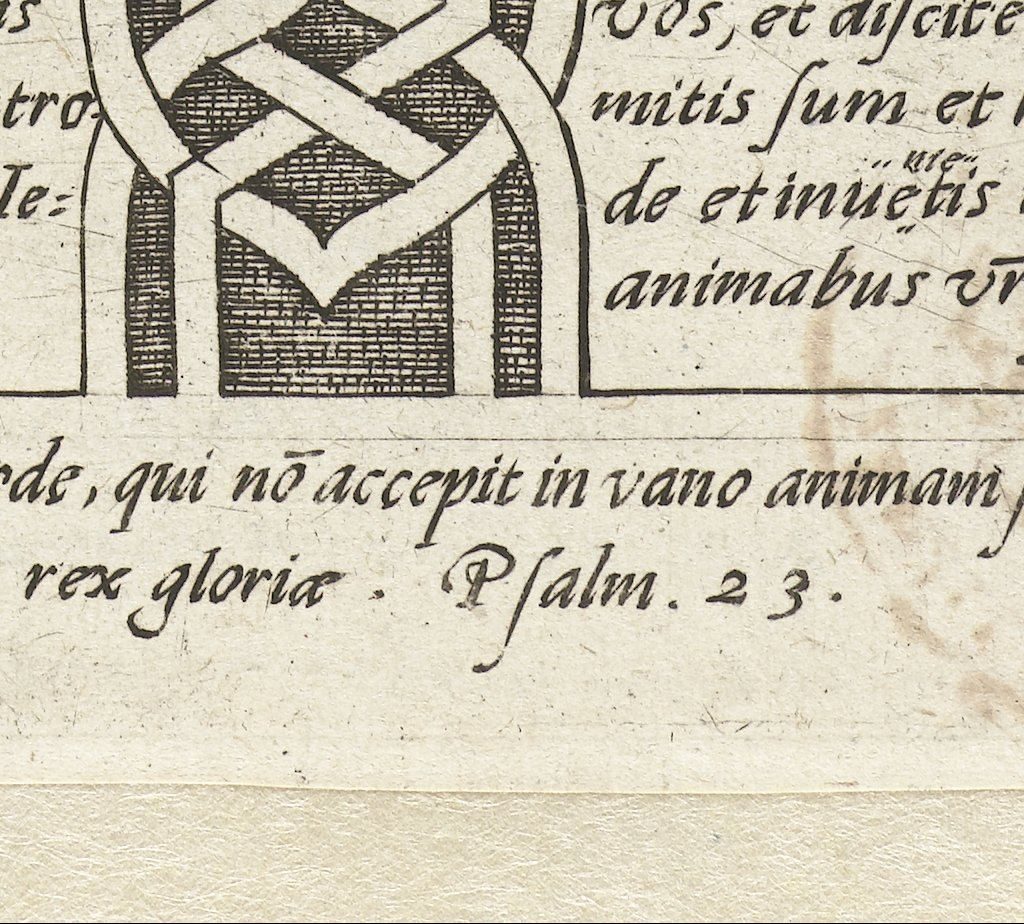 is
tro.
le=
vos, et diſcite
mitis ſum et
de et inuēetis
me
animabus vr̄
rde, qui nō accepit in vano animam
rex gloriæ. Pſalm. 23.